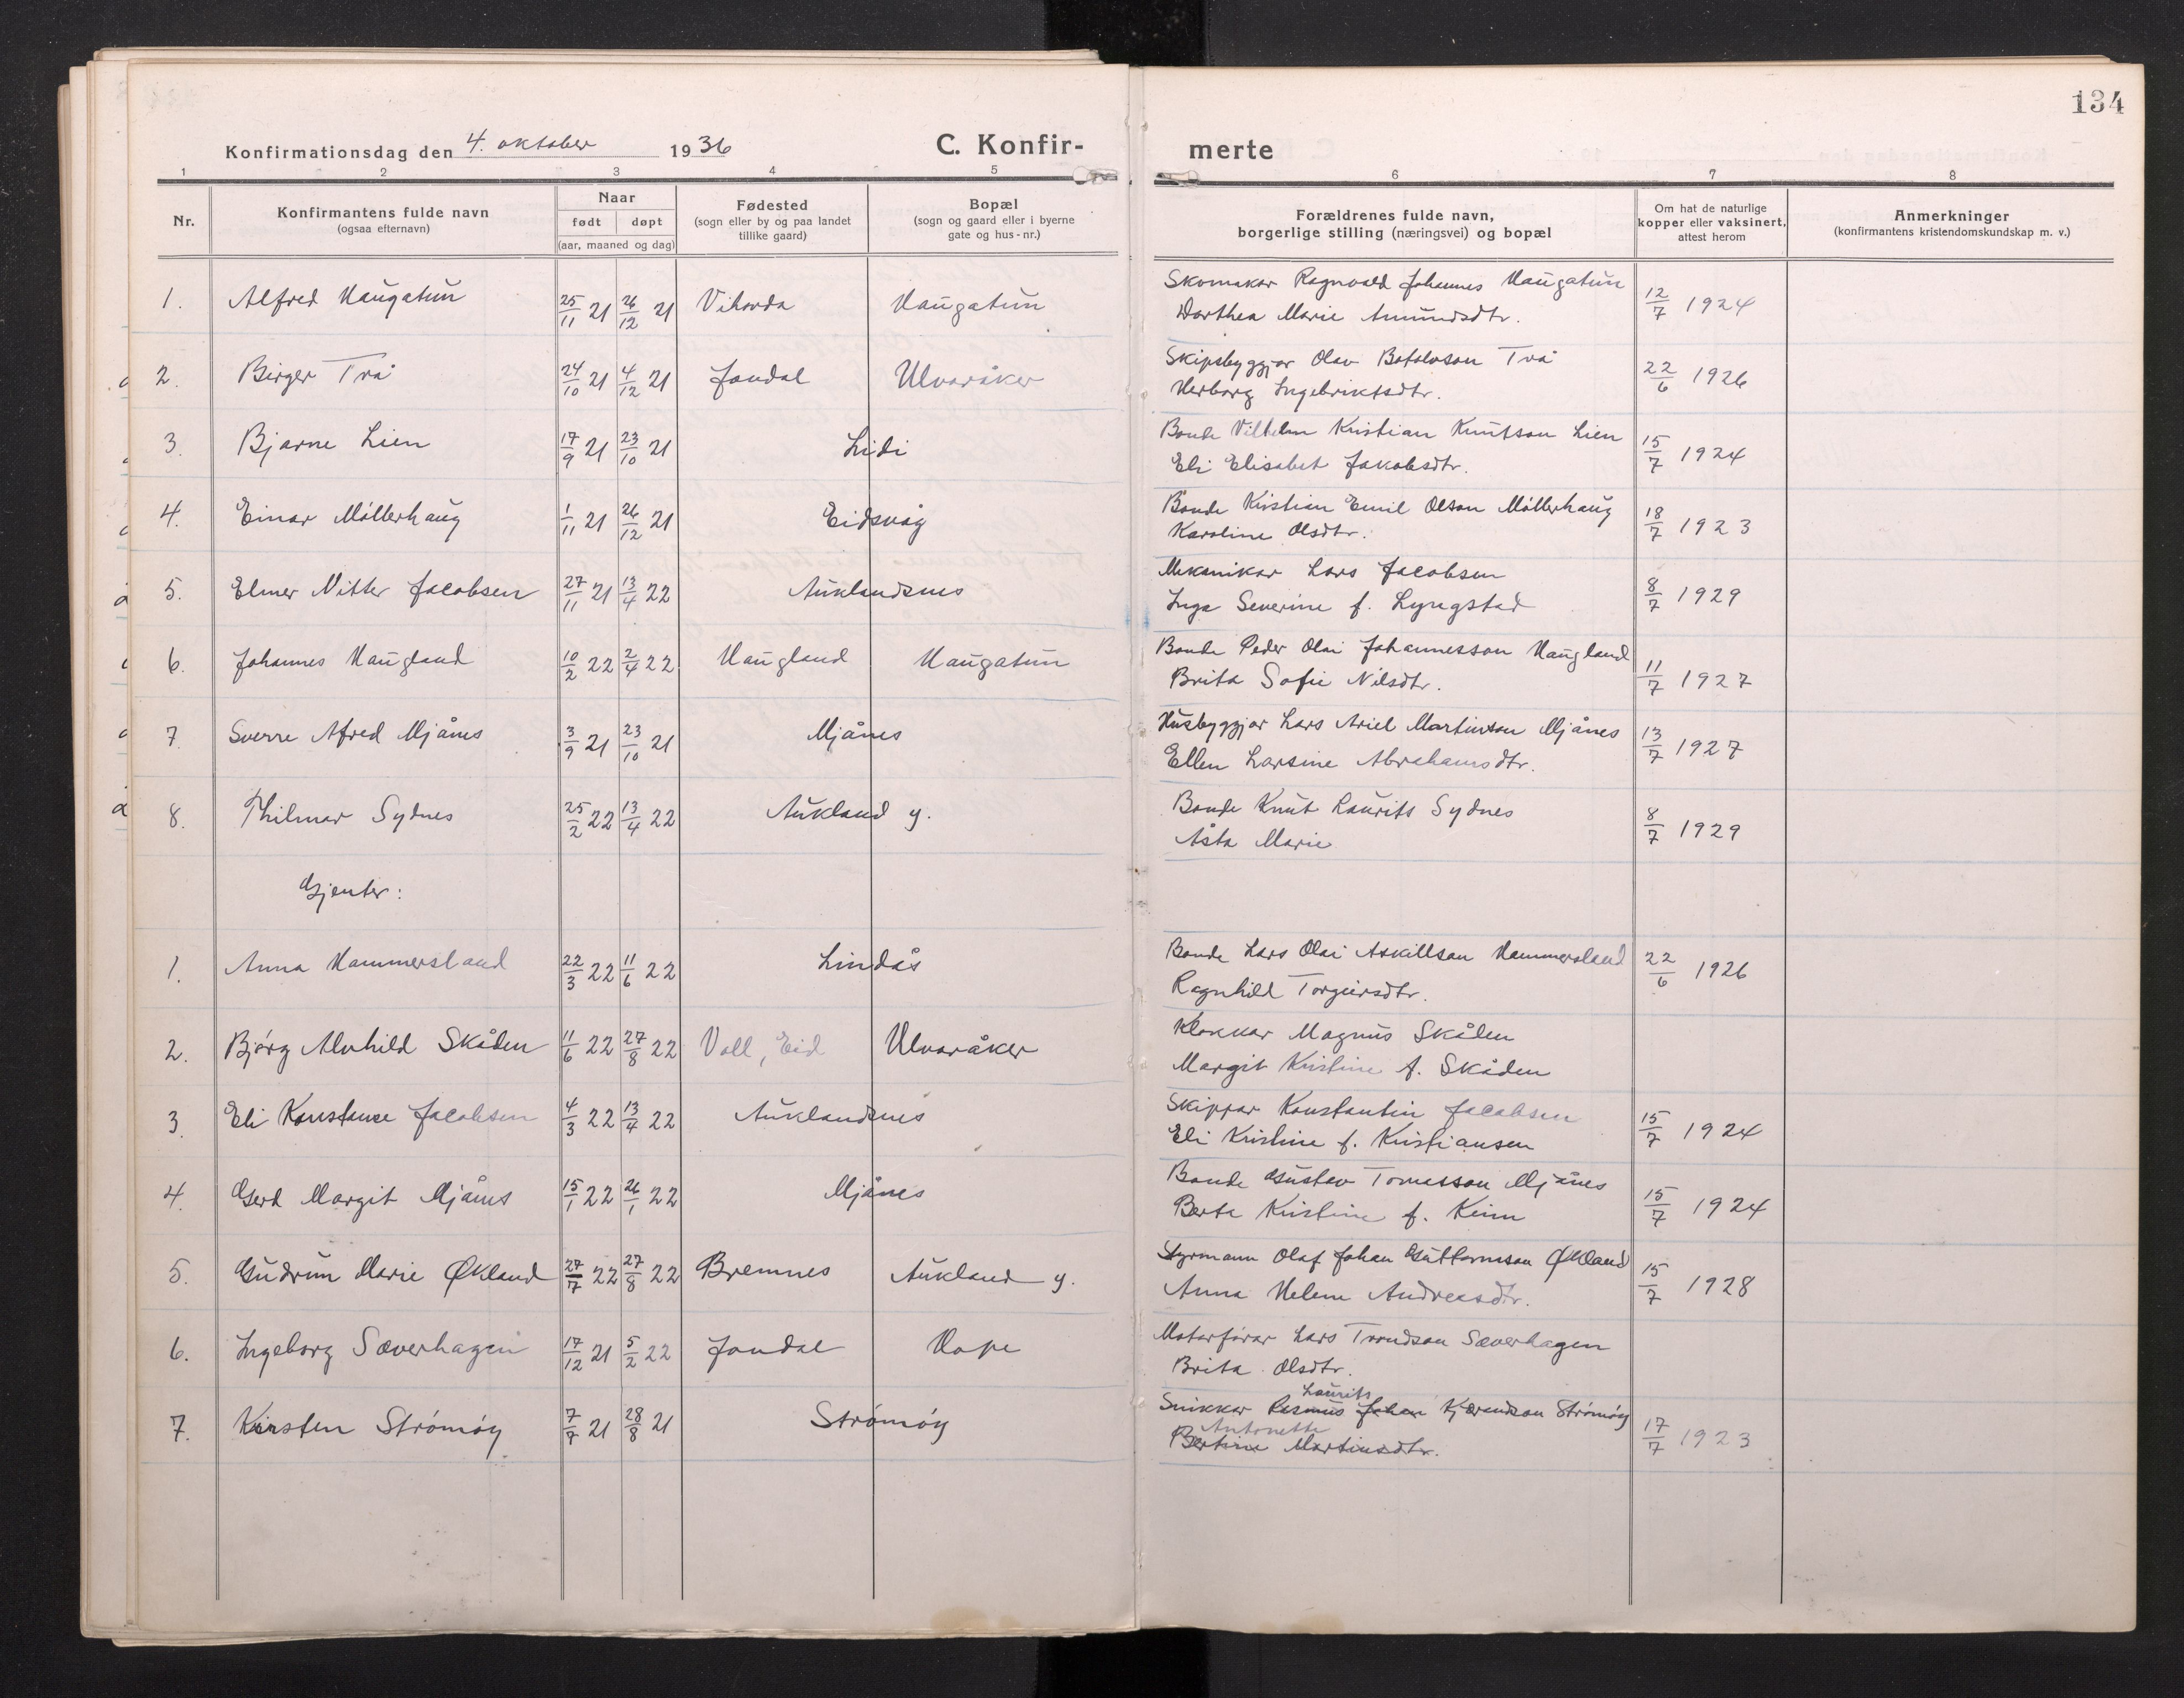 134
Konfirmationsdag den 4. oktober 1936 C. Konfirmerte
1 2 3 4 5 6 7 8
Nr. Konfirmantens fulde navn (ogsaa efternavn) Naar født døpt (aar, maaned og dag) Fødested (sogn eller by og paa landet tillike gaard) Bopæl (sogn og gaard eller i byerne gate og hus-nr.) Forældrenes fulde navn, borgerlige stilling (næringsvei) og bopæl Om hat de naturlige kopper eller vaksinert, attest herom Anmerkninger (konfirmantens kristendomskundskap m. v.)
1. Alfred Haugatun 25/11 21 26/12 21 Vihovda Haugatun Skomakar Ragnvald Johannes Haugatun 12/7 1924
Dorthea Marie Amundsdtr.
2. Birger Trå 24/10 21 4/12 21 Jondal Ulvaråker Skipsbyggjar Olav Botolvson Trå 22/6 1926
Herborg Ingebriktsdtr.
3. Bjarne Lien 17/9 21 23/10 21 Lidi Bonde Vilhelm Kristian Knutson Lien 15/7 1924
Eli Elisabet Jakobsdtr.
4. Einar Möllerhaug 1/11 21 26/12 21 Eidsvåg Bonde Kristian Emil Olson Möllerhaug 18/7 1923
Karoline Olsdtr.
5. Elmer Nitter Jacobsen 27/11 21 13/4 22 Auklandsnes Mekanikar Lars Jacobsen 8/7 1929
Inga Severine f. Lyngstad
6. Johannes Haugland 10/2 22 2/4 22 Haugland Haugatun Bonde Peder Olai Johannesson Haugland 11/7 1927
Brita Sofie Nilsdtr.
7. Sverre Afred Mjånes 3/9 21 23/10 21 Mjånes Husbyggjar Lars Ariel Martinson Mjånes 13/7 1927
Ellen Larsine Abrahamsdtr.
8. Thilmar Sydnes 25/2 22 13/4 22 Aukland y. Bonde Knut Laurits Sydnes 8/7 1929
Åsta Marie
Gjenter:
1. Anna Hammersland 22/3 22 11/6 22 Lindås Bonde Lars Olai Askillson Hammersland 22/6 1926
Ragnhild Torgeirsdtr.
2. Bjørg Alvhild Skåden 11/6 22 27/8 22 Voll, Eid Ulvaråker Klokkar Magnus Skåden
Margit Kristine f. Skåden
3. Eli Konstanse Jacobsen 4/3 22 13/4 22 Auklandsnes Skippar Konstantin Jacobsen 15/7 1924
Eli Kristine f. Kristiansen
4. Gerd Margit Mjånes 15/1 22 26/1 22 Mjånes Bonde Gustav Tomasson Mjånes 15/7 1924
Berta Kristine f. Keim
5. Gudrun Marie Økland 27/7 22 27/8 22 Bremnes Aukland y. Styrmann Olaf Johan Guttormson Økland 15/7 1928
Anna Helene Andreasdtr.
6. Ingeborg Sæverhagen 17/12 21 5/2 22 Jondal Hope Motorførar Lars Trondson Sæverhagen
Brita Olsdtr.
Laurits
7. Kirsten Strømøy 7/7 21 28/8 21 Strømøy Snikkar Rasmus Johan Kjærandson Strømøy 17/7 1923
Antonette
Bertine Martinsdtr.